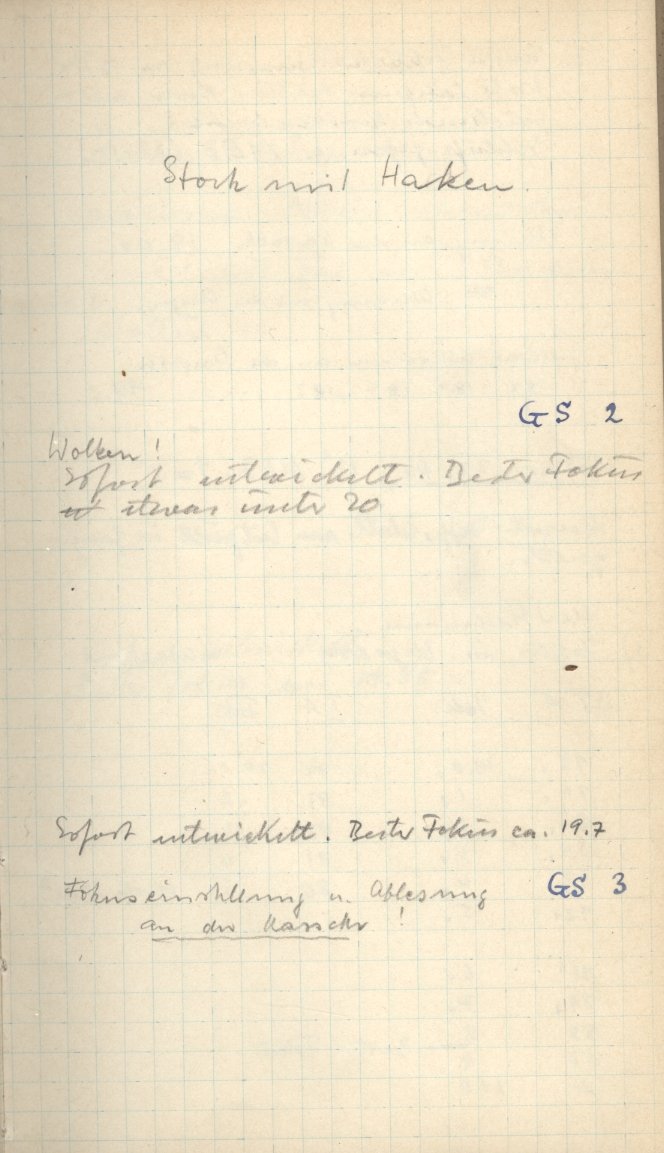 Stock mit Haken.
GS 2
Wolken!
Sofort entwickelt. Bester Fokus
ist etwas unter 20
Sofort entwickelt. Bester Fokus ca. 19.7
Fokuseinstellung u. Ablesung GS 3
an der Kassette!